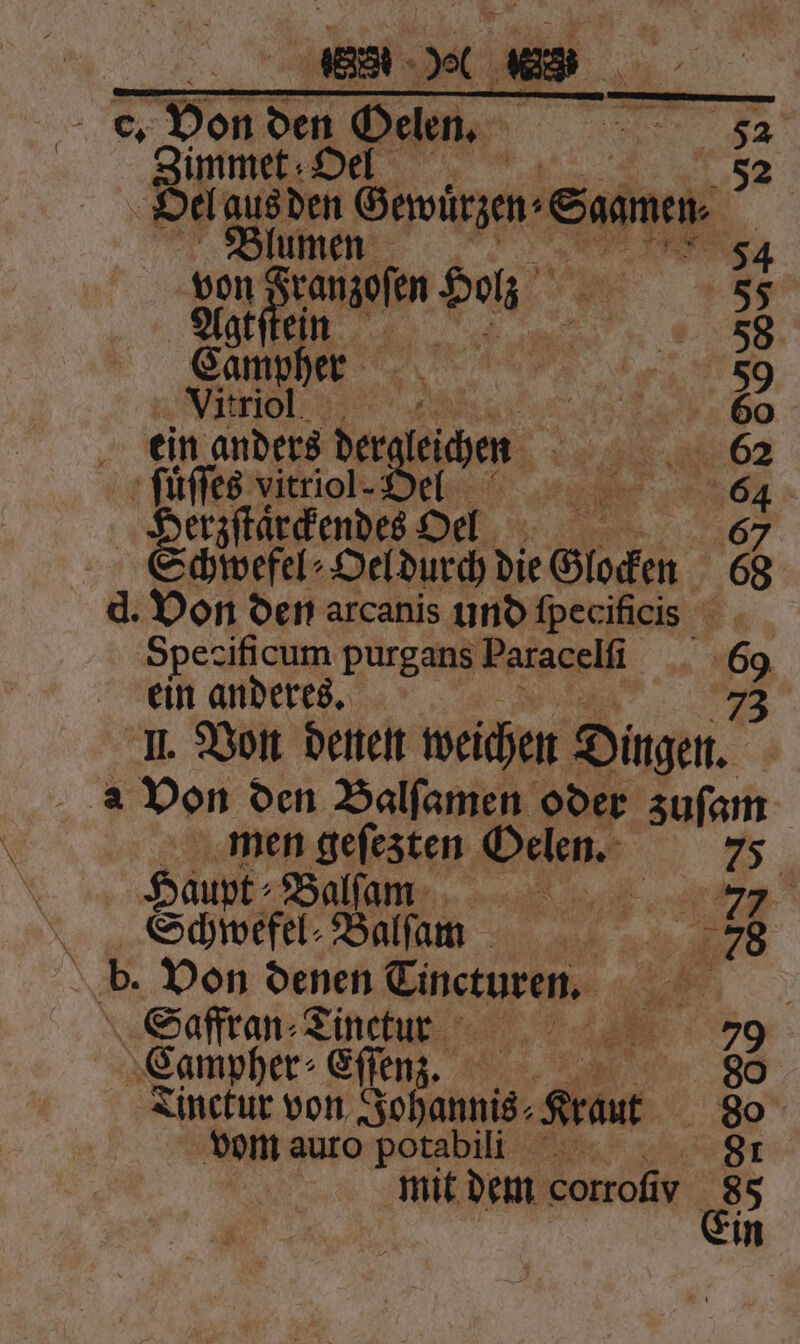 c. Von den Oelen. 52
Zimmet-Oel 52
Oel aus den Gewürzen-Saamen-
Blumen 54
von Franzoſen Holz 55
Agtſtein 58
Campher 59
Vitriol 60
ein anders dergleichen 62
ſüſſes vitriol-Oel 64
Herzſtärckendes Oel 67
Schwefel-Oel durch die Glocken 68
d. Von den arcanis und ſpecificis
Specificum purgans Paracelſi 69
ein anderes. 73
II. Von denen weichen Dingen.
a Von den Balſamen oder zuſam
men geſezten Oelen. 75
Haupt-Balſam 77
Schwefel-Balſam 78
b. Von denen Tincturen.
Saffran-Tinctur 79
Campher-Eſſenz. 80
Tinctur von Johannis-Kraut 80
vom auro potabili 81
mit dem corroſiv 85
Ein